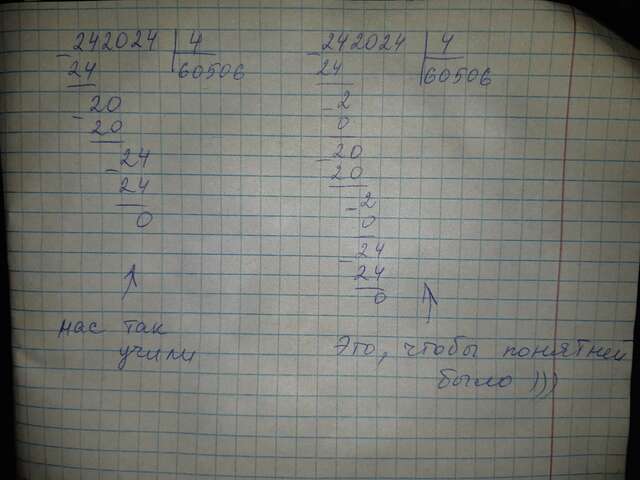 242024 | 4
24 60506
20
20
24
24
0
нас так
учили
242024 | 4
24 60506
2
0
20
20
2
0
24
24
0
Это, чтобы понятней
было )))